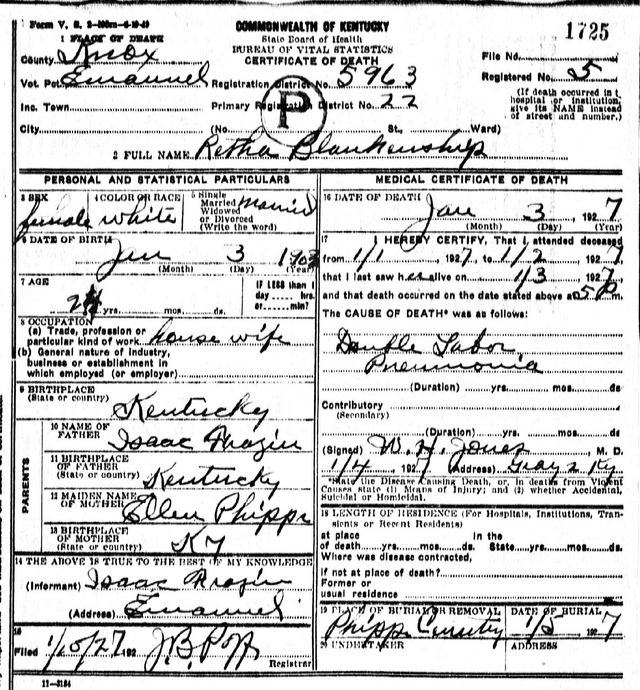 Form V. S.
1725
COMMONWEALTH OF KENTUCKY
State Board of Health
BUREAU OF VITAL STATISTICS
CERTIFICATE OF DEATH
1 PLACE OF DEATH
County Knox
File No.
Vot. Pct. Emanuel Registration District No. 5963
Registered No. 5
Inc. Town Primary Registration District No. 22
(If death occurred in
hospital or institution,
give its NAME instead
of street and number.)
P
City (No. St., Ward)
2 FULL NAME Retha Blankenship
PERSONAL AND STATISTICAL PARTICULARS
3 SEX female
4 COLOR OR RACE white
5 Single
Married
Widowed
or Divorced
(Write the word) Married
6 DATE OF BIRTH
Jan 3 1903
(Month) (Day) (Year)
7 AGE
yrs. mos. ds.
IF LESS than 1
day hrs.
or min?
8 OCCUPATION
(a) Trade, profession or
particular kind of work house wife
(b) General nature of industry,
business or establishment in
which employed (or employer)
9 BIRTHPLACE
(State or country)
Kentucky
PARENTS
10 NAME OF
FATHER Isaac
11 BIRTHPLACE
OF FATHER
(State or country) Kentucky
12 MAIDEN NAME
OF MOTHER Ellen Phipps
13 BIRTHPLACE
OF MOTHER
(State or country) KY
14 THE ABOVE IS TRUE TO THE BEST OF MY KNOWLEDGE
(Informant) Isaac
(Address) Emanuel
15
Filed 192
Registrar
11-3184
MEDICAL CERTIFICATE OF DEATH
16 DATE OF DEATH
Jan 3, 1927
(Month) (Day) (Year)
17 I HEREBY CERTIFY, That I attended deceased
from 1/1 1927, to 1/2 1927
that I last saw her alive on 1/3 1927
and that death occurred on the date stated above at 5 P m.
The CAUSE OF DEATH* was as follows:
Double Labor
Pneumonia
(Duration) yrs. mos. ds
Contributory
(Secondary)
(Duration) yrs. mos. ds
(Signed) W. H. Jones M. D.
1/4 1927 (Address) Grays Ky
*State the Disease Causing Death, or, in deaths from Violent
Causes state (1) Means of Injury; and (2) whether Accidental,
Suicidal or Homicidal.
18 LENGTH OF RESIDENCE (For Hospitals, Institutions, Tran-
sients or Recent Residents)
at place In the
of death yrs. mos. ds. State yrs. mos. ds
Where was disease contracted,
if not at place of death?
Former or
usual residence
19 PLACE OF BURIAL OR REMOVAL
Phipps
DATE OF BURIAL
1/5 1927
20 UNDERTAKER
ADDRESS